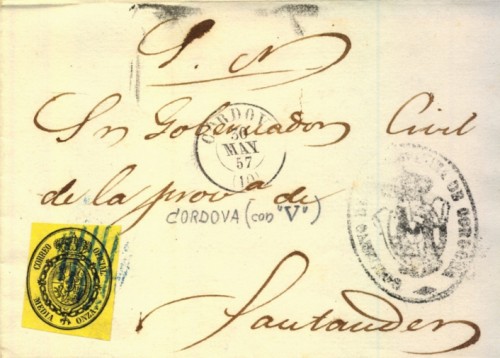 S. N.
Sr. Gobernador Civil
CORDOVA
30
MAY
57
(10)
de la prova de
CORDOVA (con "V")
Santander
CORREO OFICIAL
MEDIA ONZA
DE CORDOBA